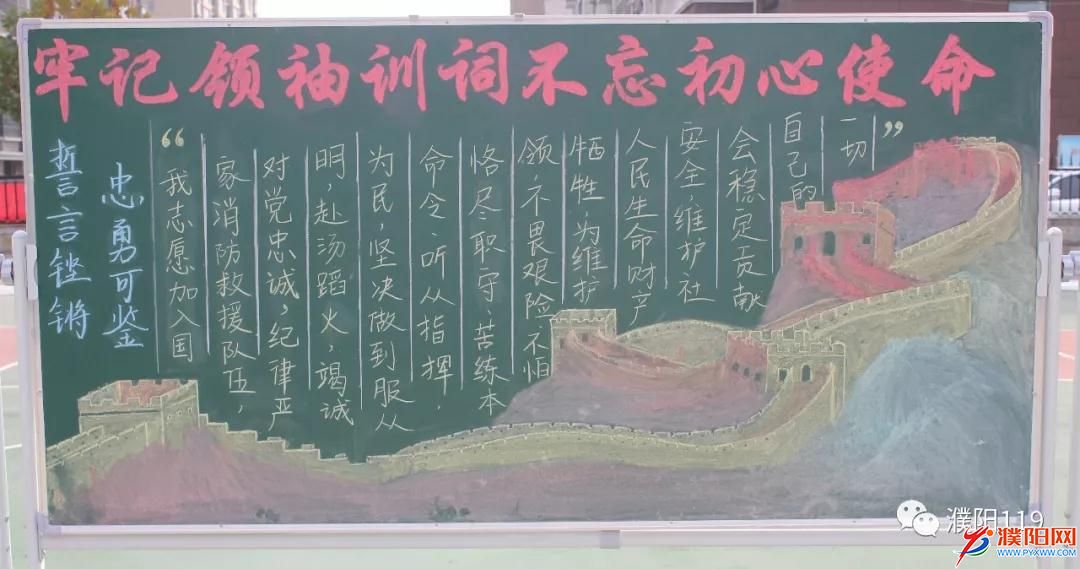 牢记领袖训词不忘初心使命
誓言铿锵
忠勇可鉴
“我志愿加入国
家消防救援队伍，
对党忠诚，纪律严
明，赴汤蹈火，竭诚
为民，坚决做到服从
命令、听从指挥，
恪尽职守、苦练本
领，不畏艰险、不怕
牺牲，为维护
人民生命财产
安全，维护社
会稳定贡献
自己的
一切”
濮阳119
濮阳网
WWW.PYXWW.COM